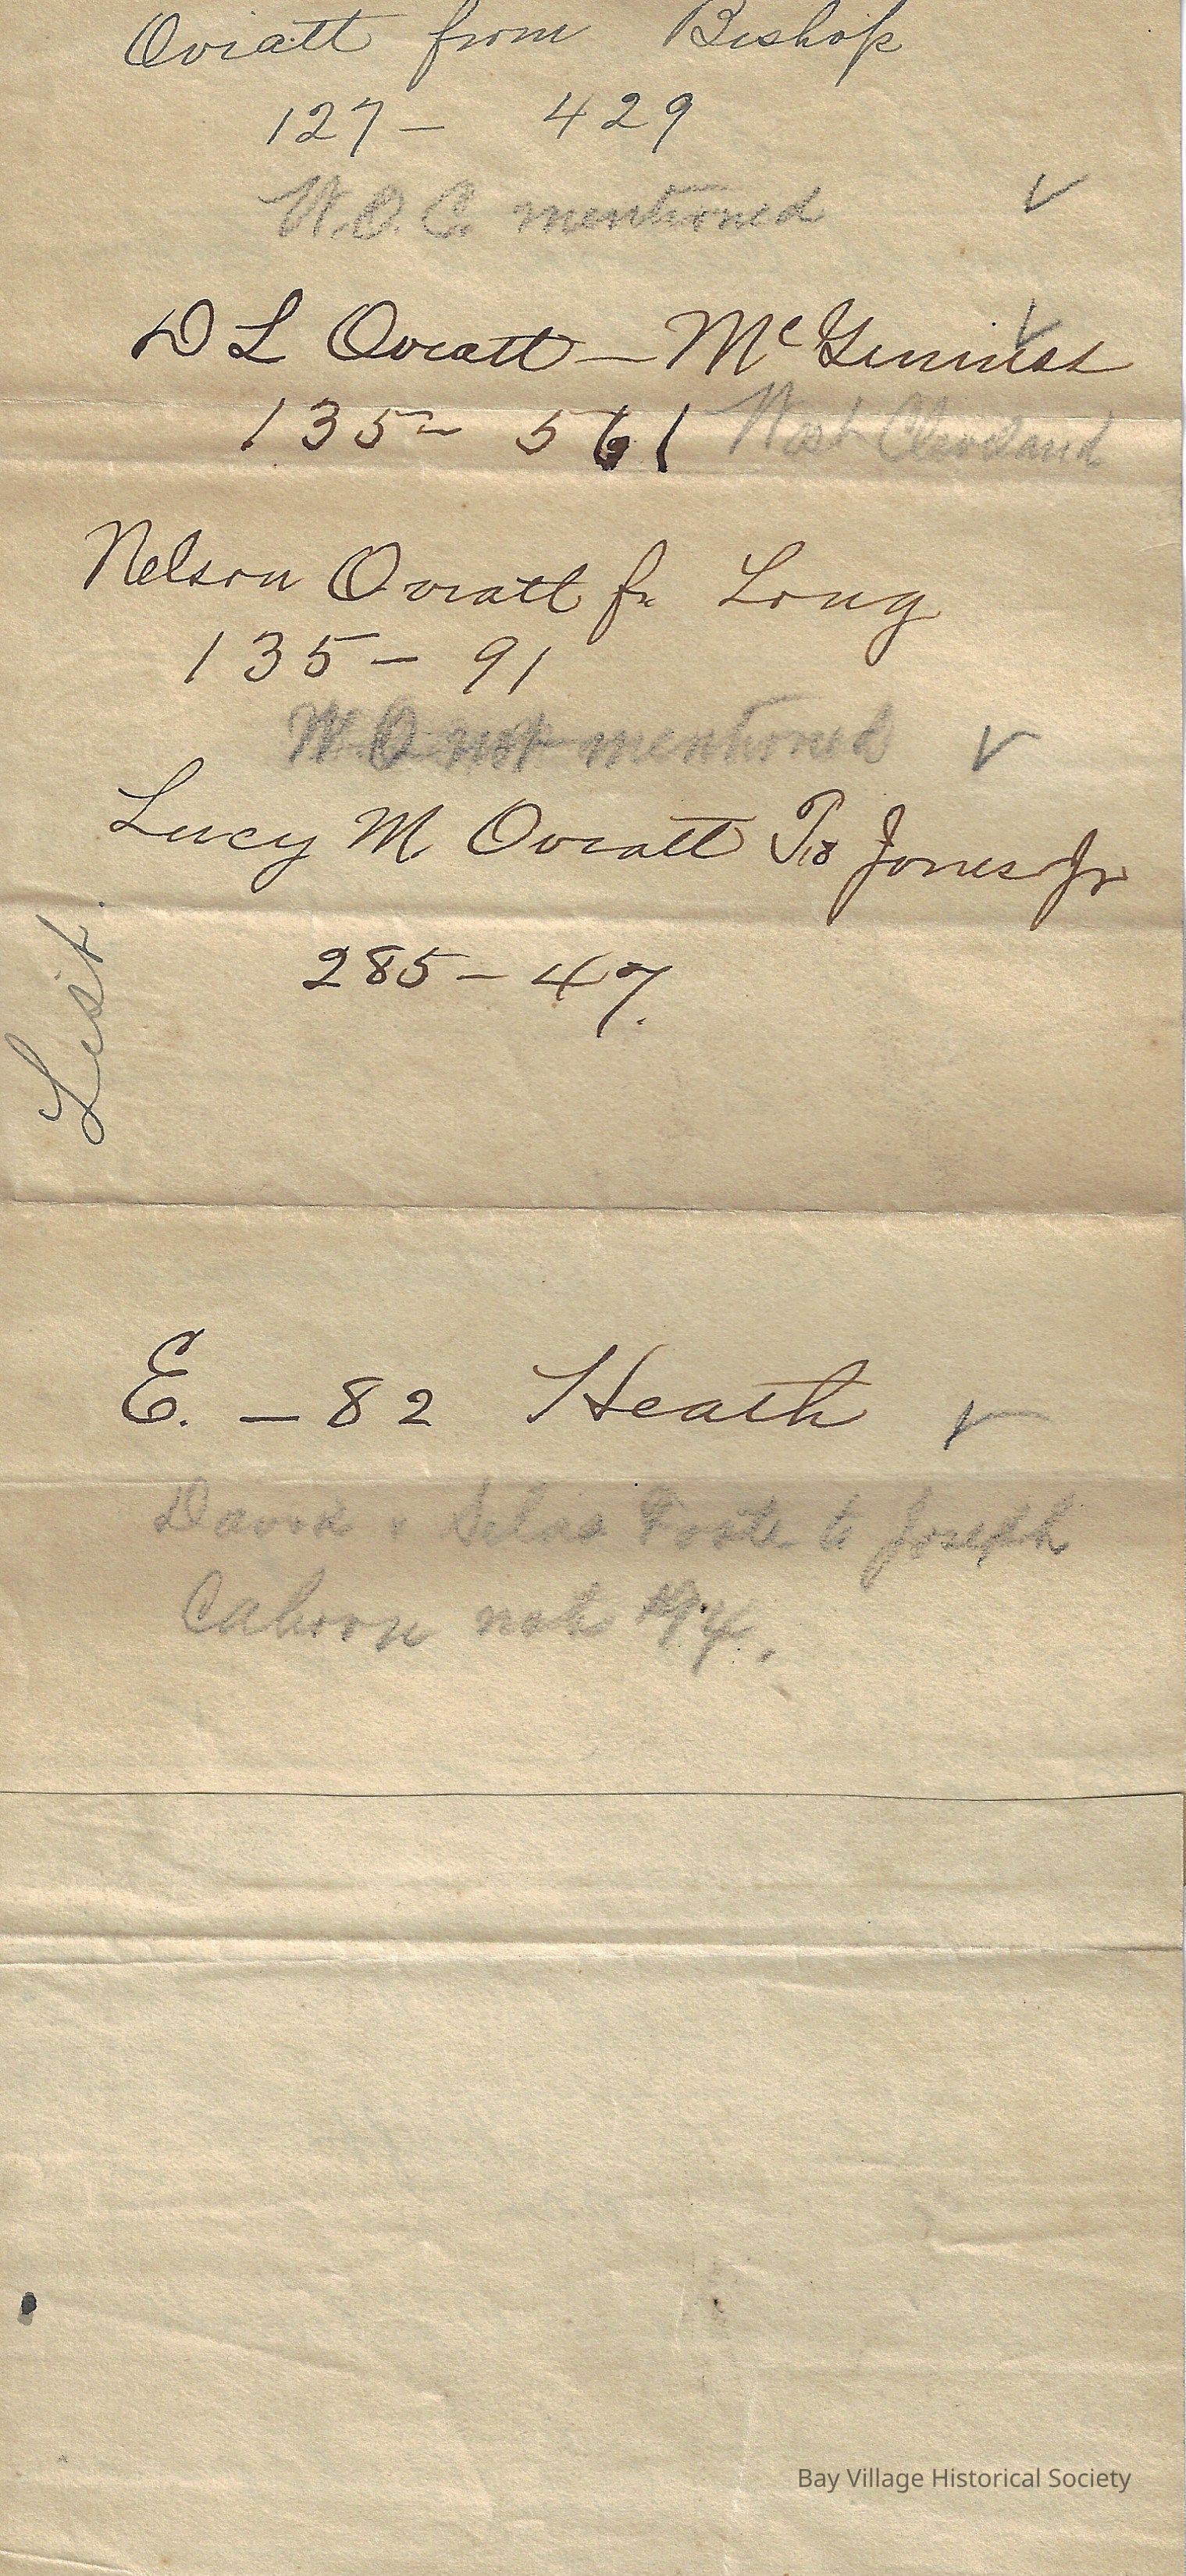 Oviatt from Bishop
127 — 429
W. O. C. mentioned ✓
D L Oviatt — McGinniss ✓
135 — 561 West Cleveland
Nelson Oviatt fr Long
135 — 91
W. O. not mentioned ✓
Lucy M Oviatt To Jones Jr
285 — 47.
List.
E. — 82 Heath ✓
David & Selas Foote to Joseph
Cahoon not
Bay Village Historical Society